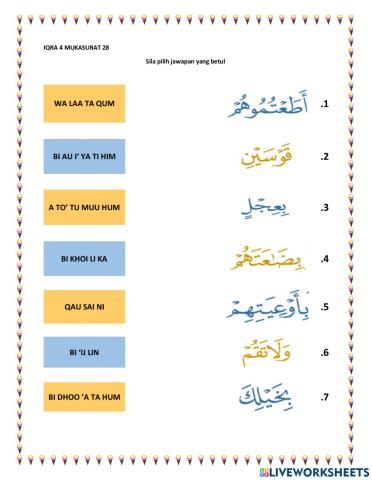 IQRA 4 MUKASURAT 28
Sila pilih jawapan yang betul
WA LAA TA QUM أَطَعْتُمُوهُمْ .1
BI AU I’ YA TI HIM قَوْسَيْنِ .2
A TO’ TU MUU HUM بِعِجْلٍ .3
BI KHOI LI KA بِضَاعَتَهُمْ .4
QAU SAI NI بِأَوْعِيَتِهِمْ .5
BI ‘IJ LIN وَلَا تَقُمْ .6
BI DHOO ‘A TA HUM بِخَيْلِكَ .7
LIVEWORKSHEETS